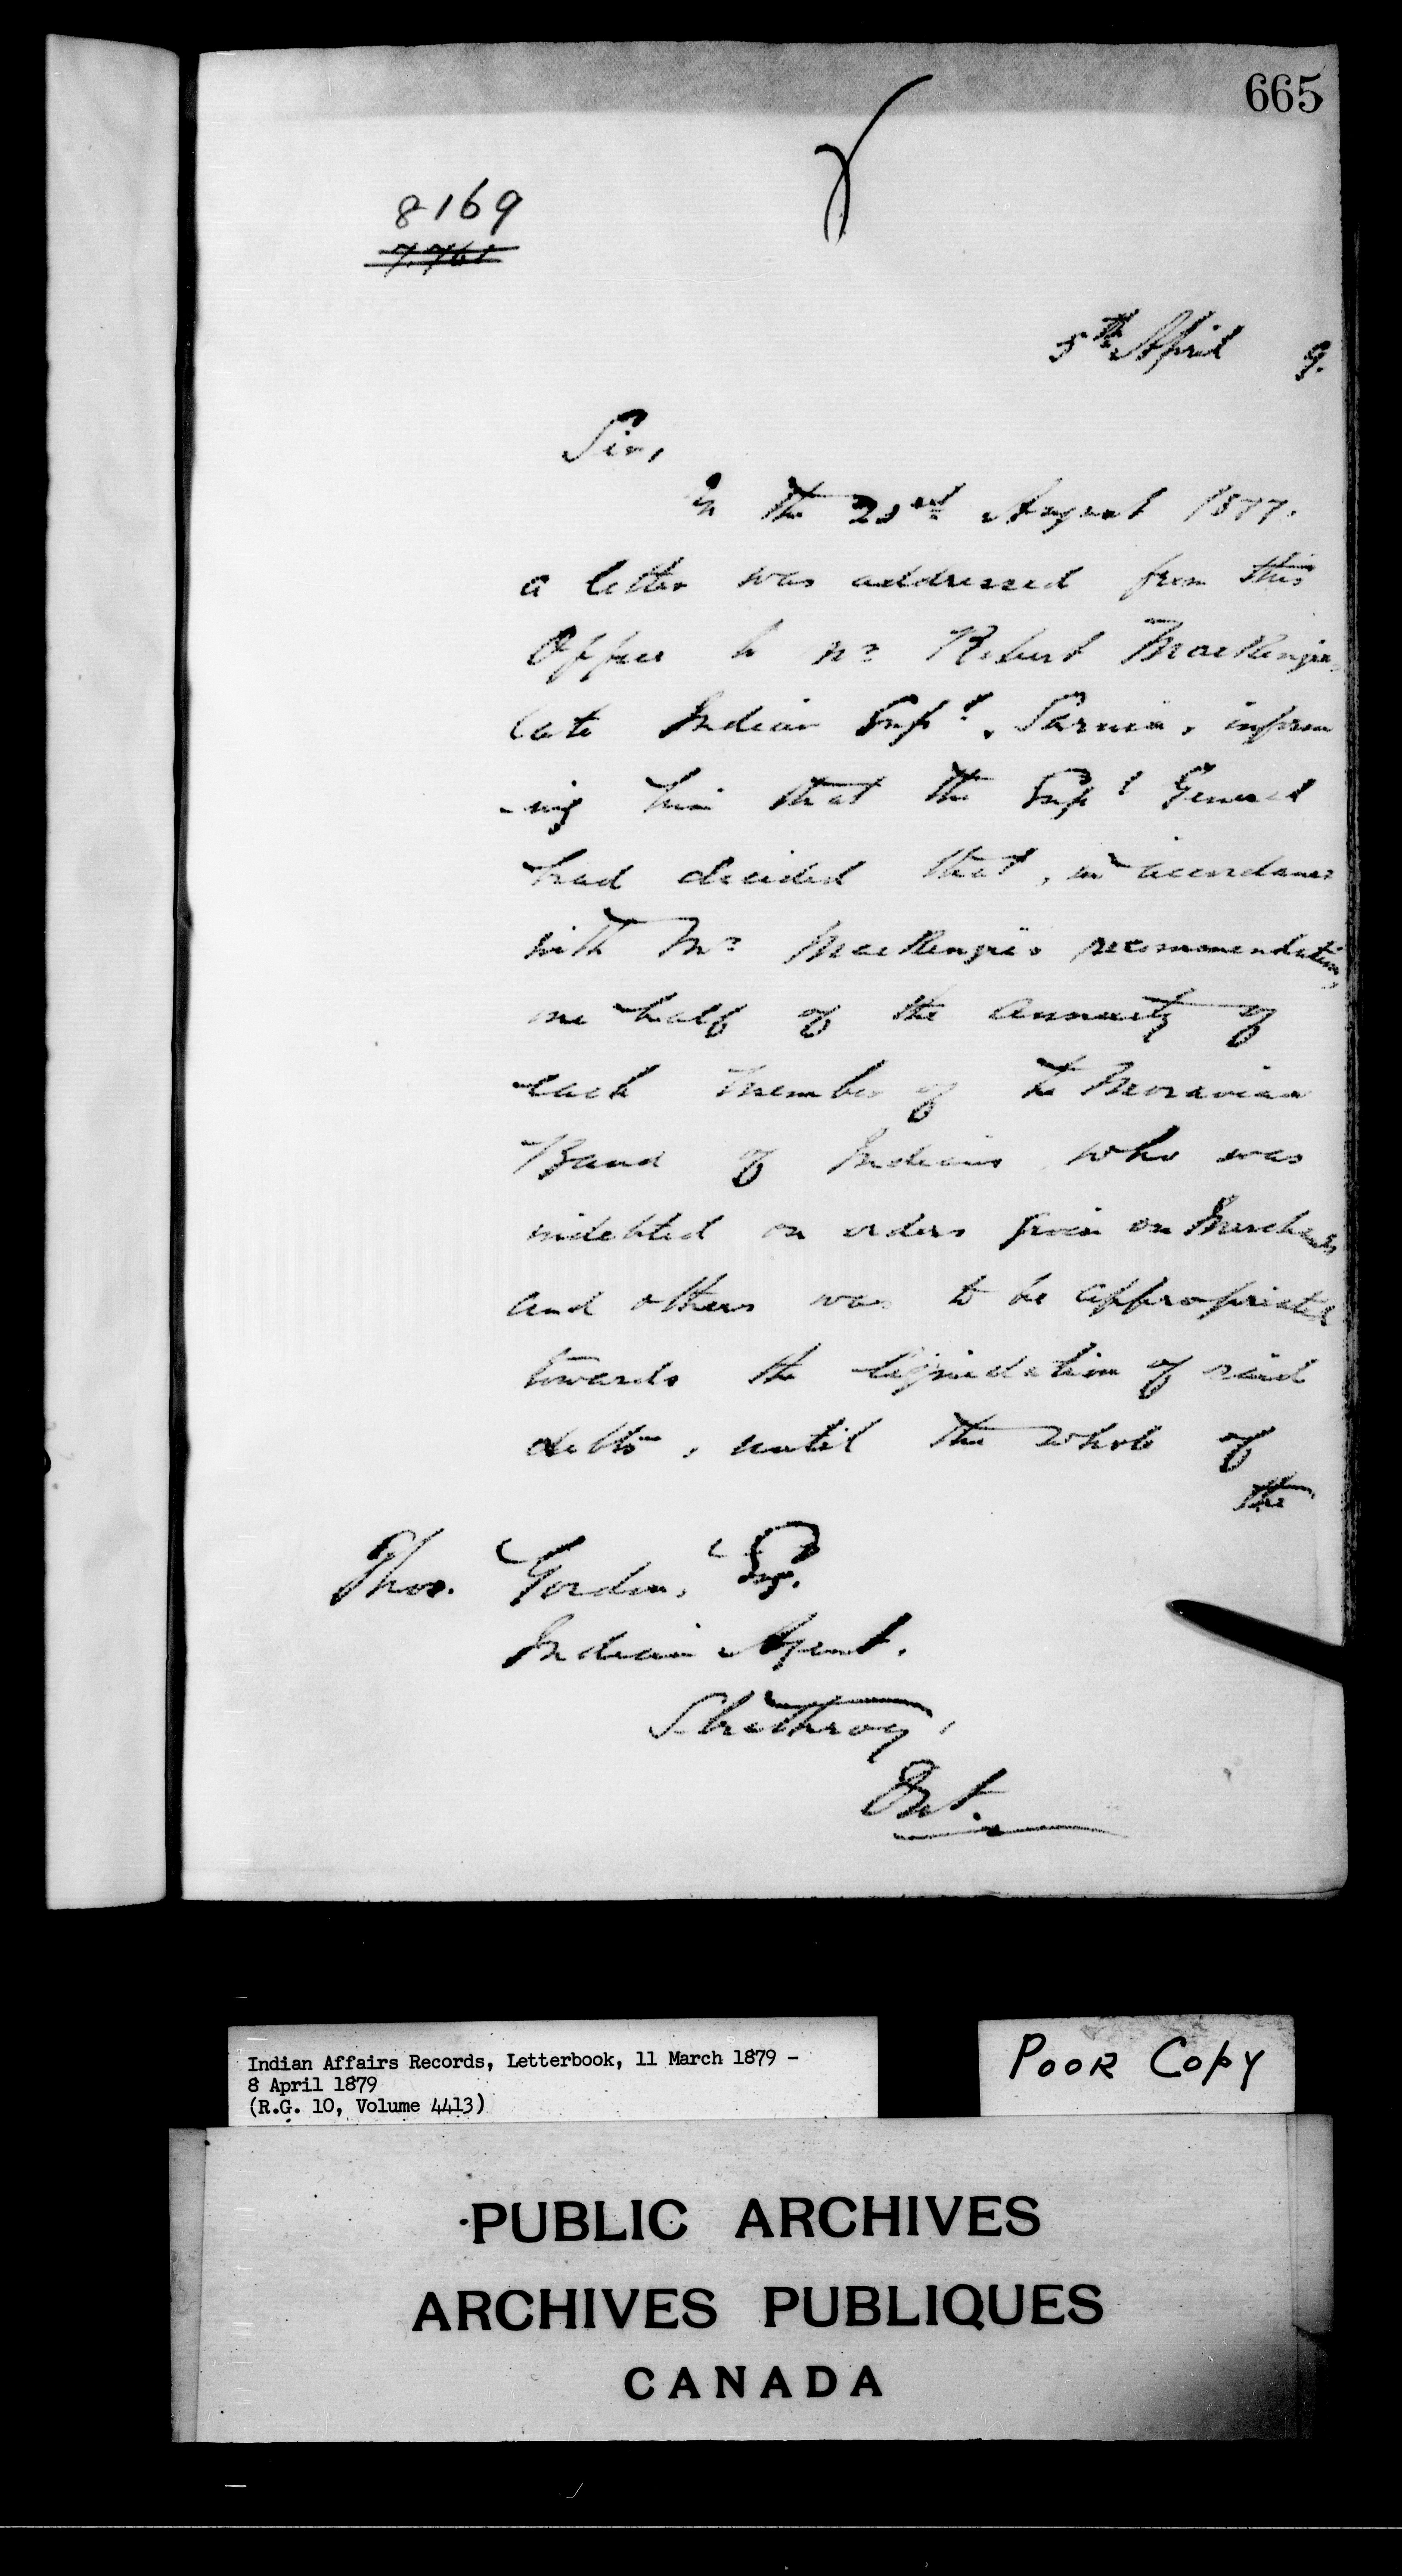 665
8169
5th April 9.
Sir,
On the 23rd August 1877.
a letter was addressed from this
Office to Mr Robert MacKenzie,
late Indian Supt, Sarnia, inform
-ing him that the Supt General
had decided that, in accordance
with Mr MacKenzie's recommendation,
one half of the annuity of
each member of the Moravian
Band of Indians who was
indebted on orders given on Merchants
and others was to be appropriated
towards the liquidation of said
debts, until the whole of
the
Thos. Gordon, Esq.
Indian Agent.
Strathroy,
Ont.
Indian Affairs Records, Letterbook, 11 March 1879 -
8 April 1879
(R.G. 10, Volume 4413)
POOR COPY
PUBLIC ARCHIVES
ARCHIVES PUBLIQUES
CANADA